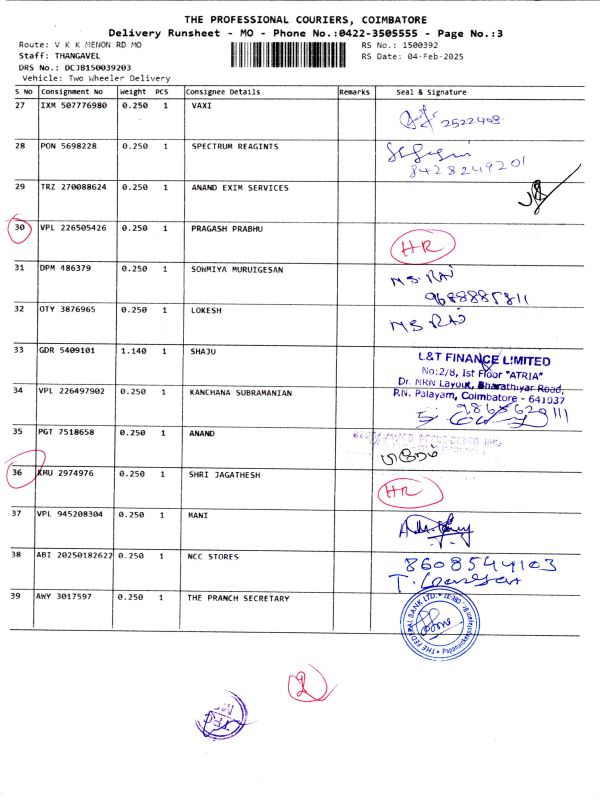 THE PROFESSIONAL COURIERS, COIMBATORE
Delivery Runsheet - MO - Phone No.:0422-3505555 - Page No.:3
Route: V K K MENON RD MO RS No.: 1500392
Staff: THANGAVEL RS Date: 04-Feb-2025
DRS No.: DCJB150039203
Vehicle: Two Wheeler Delivery
S No Consignment No Weight PCS Consignee Details Remarks Seal & Signature
27 IXM 507776980 0.250 1 VAXI
2522408
28 PON 5698228 0.250 1 SPECTRUM REAGINTS
8428249201
29 TRZ 270088624 0.250 1 ANAND EXIM SERVICES
30 VPL 226505426 0.250 1 PRAGASH PRABHU
HR
31 DPM 486379 0.250 1 SOWMIYA MURUIGESAN
MS RAJ
9688885811
32 OTY 3876965 0.250 1 LOKESH
MS RAJ
33 GDR 5409101 1.140 1 SHAJU
L&T FINANCE LIMITED
No:2/8, Ist Floor "ATRIA"
Dr. NRN Layout, Bharathiyar Road,
P.N. Palayam, Coimbatore - 641037
34 VPL 226497902 0.250 1 KANCHANA SUBRAMANIAN
35 PGT 7518658 0.250 1 ANAND
36 KMU 2974976 0.250 1 SHRI JAGATHESH
HR
37 VPL 945208304 0.250 1 MANI
38 ABI 20250182622 0.250 1 NCC STORES
8608549103
39 AWY 3017597 0.250 1 THE PRANCH SECRETARY
THE FEDERAL BANK LTD.
2